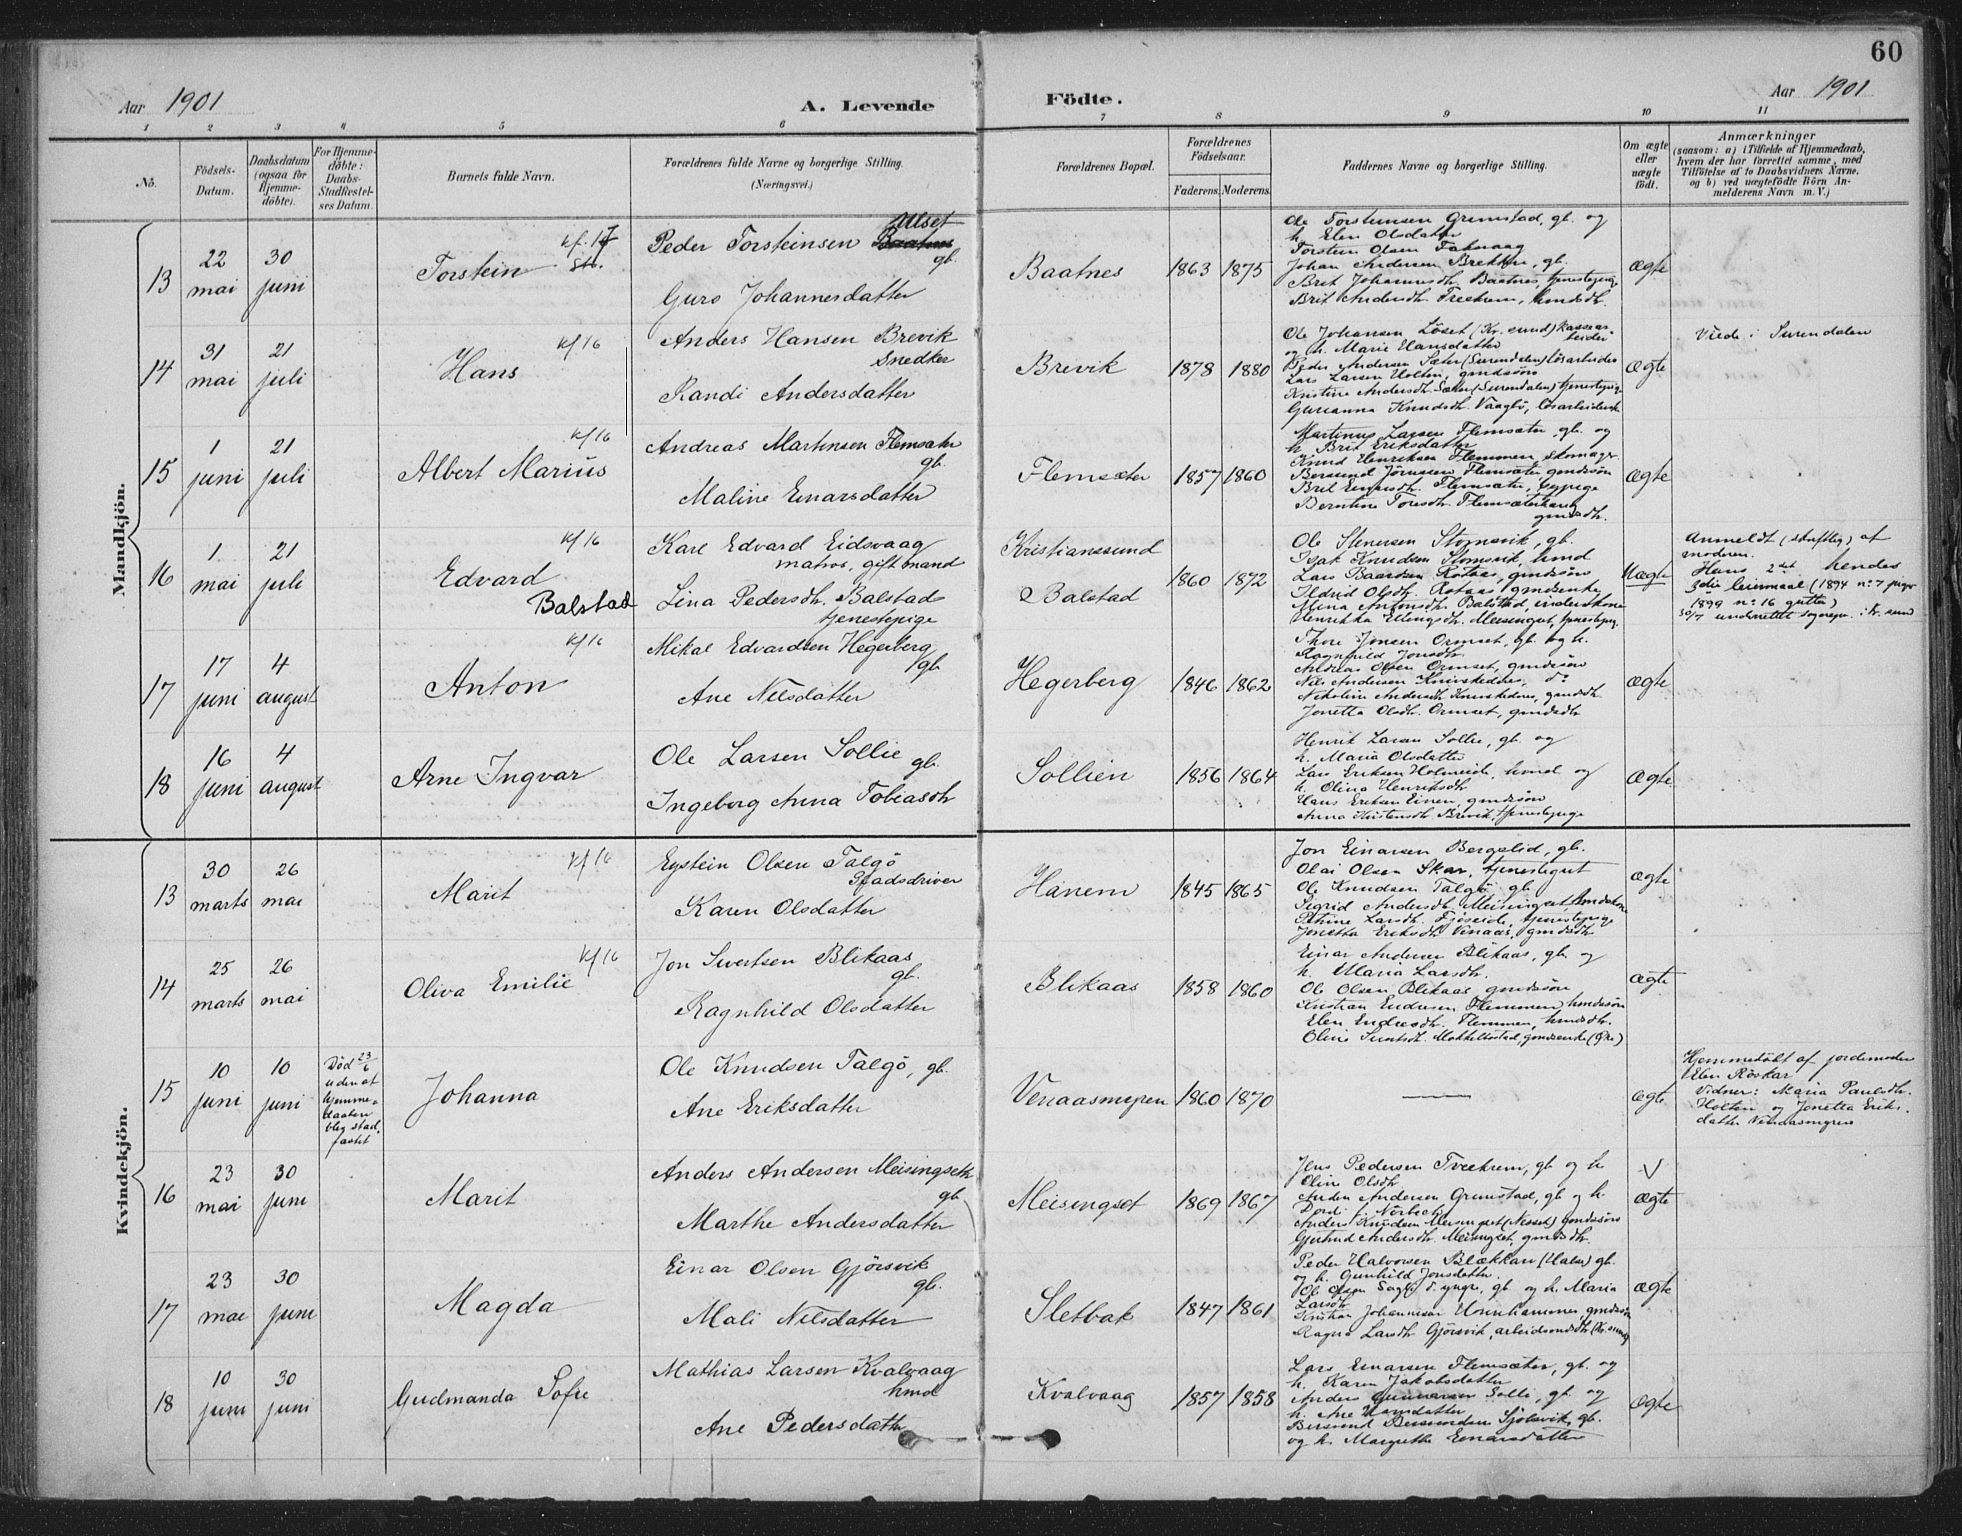 60
Aar 1901
A. Levende
Födte.
Aar 1901
1 2 3 4 5 6 7 8 9 10 11
No.
Födsels-Datum.
Daabsdatum (ogsaa for Hjemme-döbte).
For Hjemme-döbte: Daabs-Stadfæstel-ses Datum.
Barnets fulde Navn.
Forældrenes fulde Navne og borgerlige Stilling.
(Næringsvei.)
Forældrenes Bopæl.
Forældrenes Födselsaar.
Faderens. Moderens.
Faddernes Navne og borgerlige Stilling.
Om ægte eller uægte födt.
Anmærkninger
(saasom: a) i Tilfælde af Hjemmedaab,
hvem der har forrettet samme, med
Tilföielse af to Daabsvidners Navne,
og b) ved uægtefödte Börn An-
melderens Navn m. V.)
Mandkjön.
13
22 mai
30 juni
Torstein
kf. 17
Peder Torsteinsen Baatnes Ulset
gb.
Guro Johannesdatter
Baatnes
1863 1875
Ole Torsteinsen Grimstad, gb. og
h. Elen Olsdatter
Torstein Olsen
Johan Andersen Brekken, gb.
Brit Johannesdh. Baatnes, tjenestepige
Brit Andersdh. Treekrem, hmdsdh.
ægte
14
31 mai
21 juli
Hans
kf 16
Anders Hansen Brevik
Snedker
Randi Andersdatter
Brevik
1878 1880
Ole Johansen Löset (Kr. sund)
og h. Marie Hansdatter
Peder Andersen Sæter (Surendalen) lösarbeider
Lars Larsen Holten, gmdssön
Kristine Andersdh. Sæter (Surendalen) tjenestepige
Gurianna Knudsdh. Vaagbö, lösarbeiderske
ægte
Viede i Surendalen
15
1 juni
21 juli
Albert Marius
kf 16
Andreas Martinsen Flemsæter
gb.
Maline Einarsdatter
Flemsæter
1857 1860
Martinus Larsen Flemsæter, gb. og
h. Brit Eriksdatter
Knud Henriksen Flemmen, skomager
Bersvend Jörnsen Flemsæter gmdssön
Brit Einarsdh. Flemsæter,
Berntine Toresdh. Flemsæterhaug
gmdsdh.
ægte
16
1 mai
21 juli
Edvard
Balstad
kf 16
Karl Edvard Eidsvaag
matros, gift mand
Lina Pedersdh. Balstad
tjenestepige
Kristianssund
Balstad
1860 1872
Ole Stenersen Stomsvik, gb.
Isak Knudsen Stomsvik, hmd
Lars Baardsen Rotaas, gmdssön
Ildrid Olsdh. Rotaas gmdsenke
Mina Antonsdh. Balstad, inderstkone
Henrikka Ellingsdh. Meisingset, tjenestepig.
Uægte
Anmeldt (skriftlig) af
moderen.
Hans 2det hendes
3die leiermaal (1894 no. 7 piger
1899 no. 16 gutter)
30/7 underrettet sognepr. i Kr. sund
17
17 juni
4 august
Anton
kf 16
Mikal Edvardsen Hegerberg
gb.
Ane Nilsdatter
Hegerberg
1846 1862
Thore Jonsen Ormset, gb. og h.
Ragnhild Jonsdh.
Andreas Olsen Ormset, gmdssön
Nils Andersen Knivskednes, do
Nikoline Andersdh. Knivskednes, gmdsdh.
Jonetta Olsdh. Ormset, gmdsdh
ægte
18
16 juni
4 august
Arne Ingvar
Ole Larsen Sollie
gb.
Ingeborg Anna Tobiasdh
Sollien
1856 1864
Henrik Larsen Sollie, gb. og
h. Maria Olsdatter
Lars Eriksen Holmeide, hmd og
h. Olina Henriksdh
Hans Eriksen Einen, gmdssön
Anna Kristensdh. Brevik, tjenestepige
ægte
Kvindekjön.
13
30 marts
26 mai
Marit
kf 16
Eystein Olsen Talgö
Gaadsdriver
Karen Olsdatter
Hanem
1845 1865
Jon Einarsen Bergslid, gb.
Olai Olsen Skar, tjenestegut
Ole Knudsen Talgö gb.
Sigrid Andersdh. Meisingset hmdskone
Petrine Larsdh. Fjöseide, tjenestepige
Jonetta Eriksdh Venaas, gmdsdh
ægte
14
25 marts
26 mai
Oliva Emilie
kf 16
Jon Sivertsen Blikaas
gb.
Ragnhild Olsdatter
Blikaas
1858 1860
Einar Andersen Blikaas, gb. og
h. Maria Larsdh.
Ole Olsen Blikaas gmdssön
Kristian Endresen Flemmen hmdssön
Elen Endresdh. Flemmen, hmdsdh.
Oline Sivertsdh. Mokkelbostad, gmdsenke
ægte
15
10 juni
10 juni
Död 23/6
uden at
hjemme-
daaben
blev stad-
fæstet
Johanna
Ole Knudsen Talgö, gb.
Ane Eriksdatter
Venaasmyren
1860 1870
ægte
Hjemmedöbt af jordemoder
Elen Röskar
Vidner: Maria Paulsdh.
Holten og Jonetta Eriks-
datter Venaasmyren
16
23 mai
30 juni
Marit
Anders Andersen Meisingseth
gb
Marthe Andersdatter
Meisingset
1869 1867
Jens Pedersen Tveekrem, gb og h
Oline Olsdh
Anders Andersen Grimstad, gb og h.
Dordi f. Nörbech
Anders Knudsen Meisingset (Nesset) gmdssön
Gjertrud Andersdh. Meisingset, gmdsdh.
V
ægte
17
23 mai
30 juni
Magda
Einar Olsen Gjörsvik
gb.
Mali Nilsdatter
Sletbak
1847 1861
Peder Halvorsen Blækkan (Halsa) gb.
og h. Gunhild Jonsdatter
Ole Olsen d. yngre, gb. og h. Maria
Larsdh
Kristian Johannesen Honnhammer, gmdssön
Ragna Larsdh Gjörsvik, arbeidsmdsdh (Kr. sund)
ægte
18
10 juni
30 juni
Gudmanda Sofie
Mathias Larsen Kvalvaag
hmd
Ane Pedersdatter
Kvalvaag
1857 1858
Lars Einarsen Flemsæter, gb. og
h. Karen Jakobsdatter
Anders Gunnarsen Solli, gb. og
h. Ane
Bersvend Bersvendsen Sjölsvik, gb.
og h. Margrethe Einarsdatter
ægte